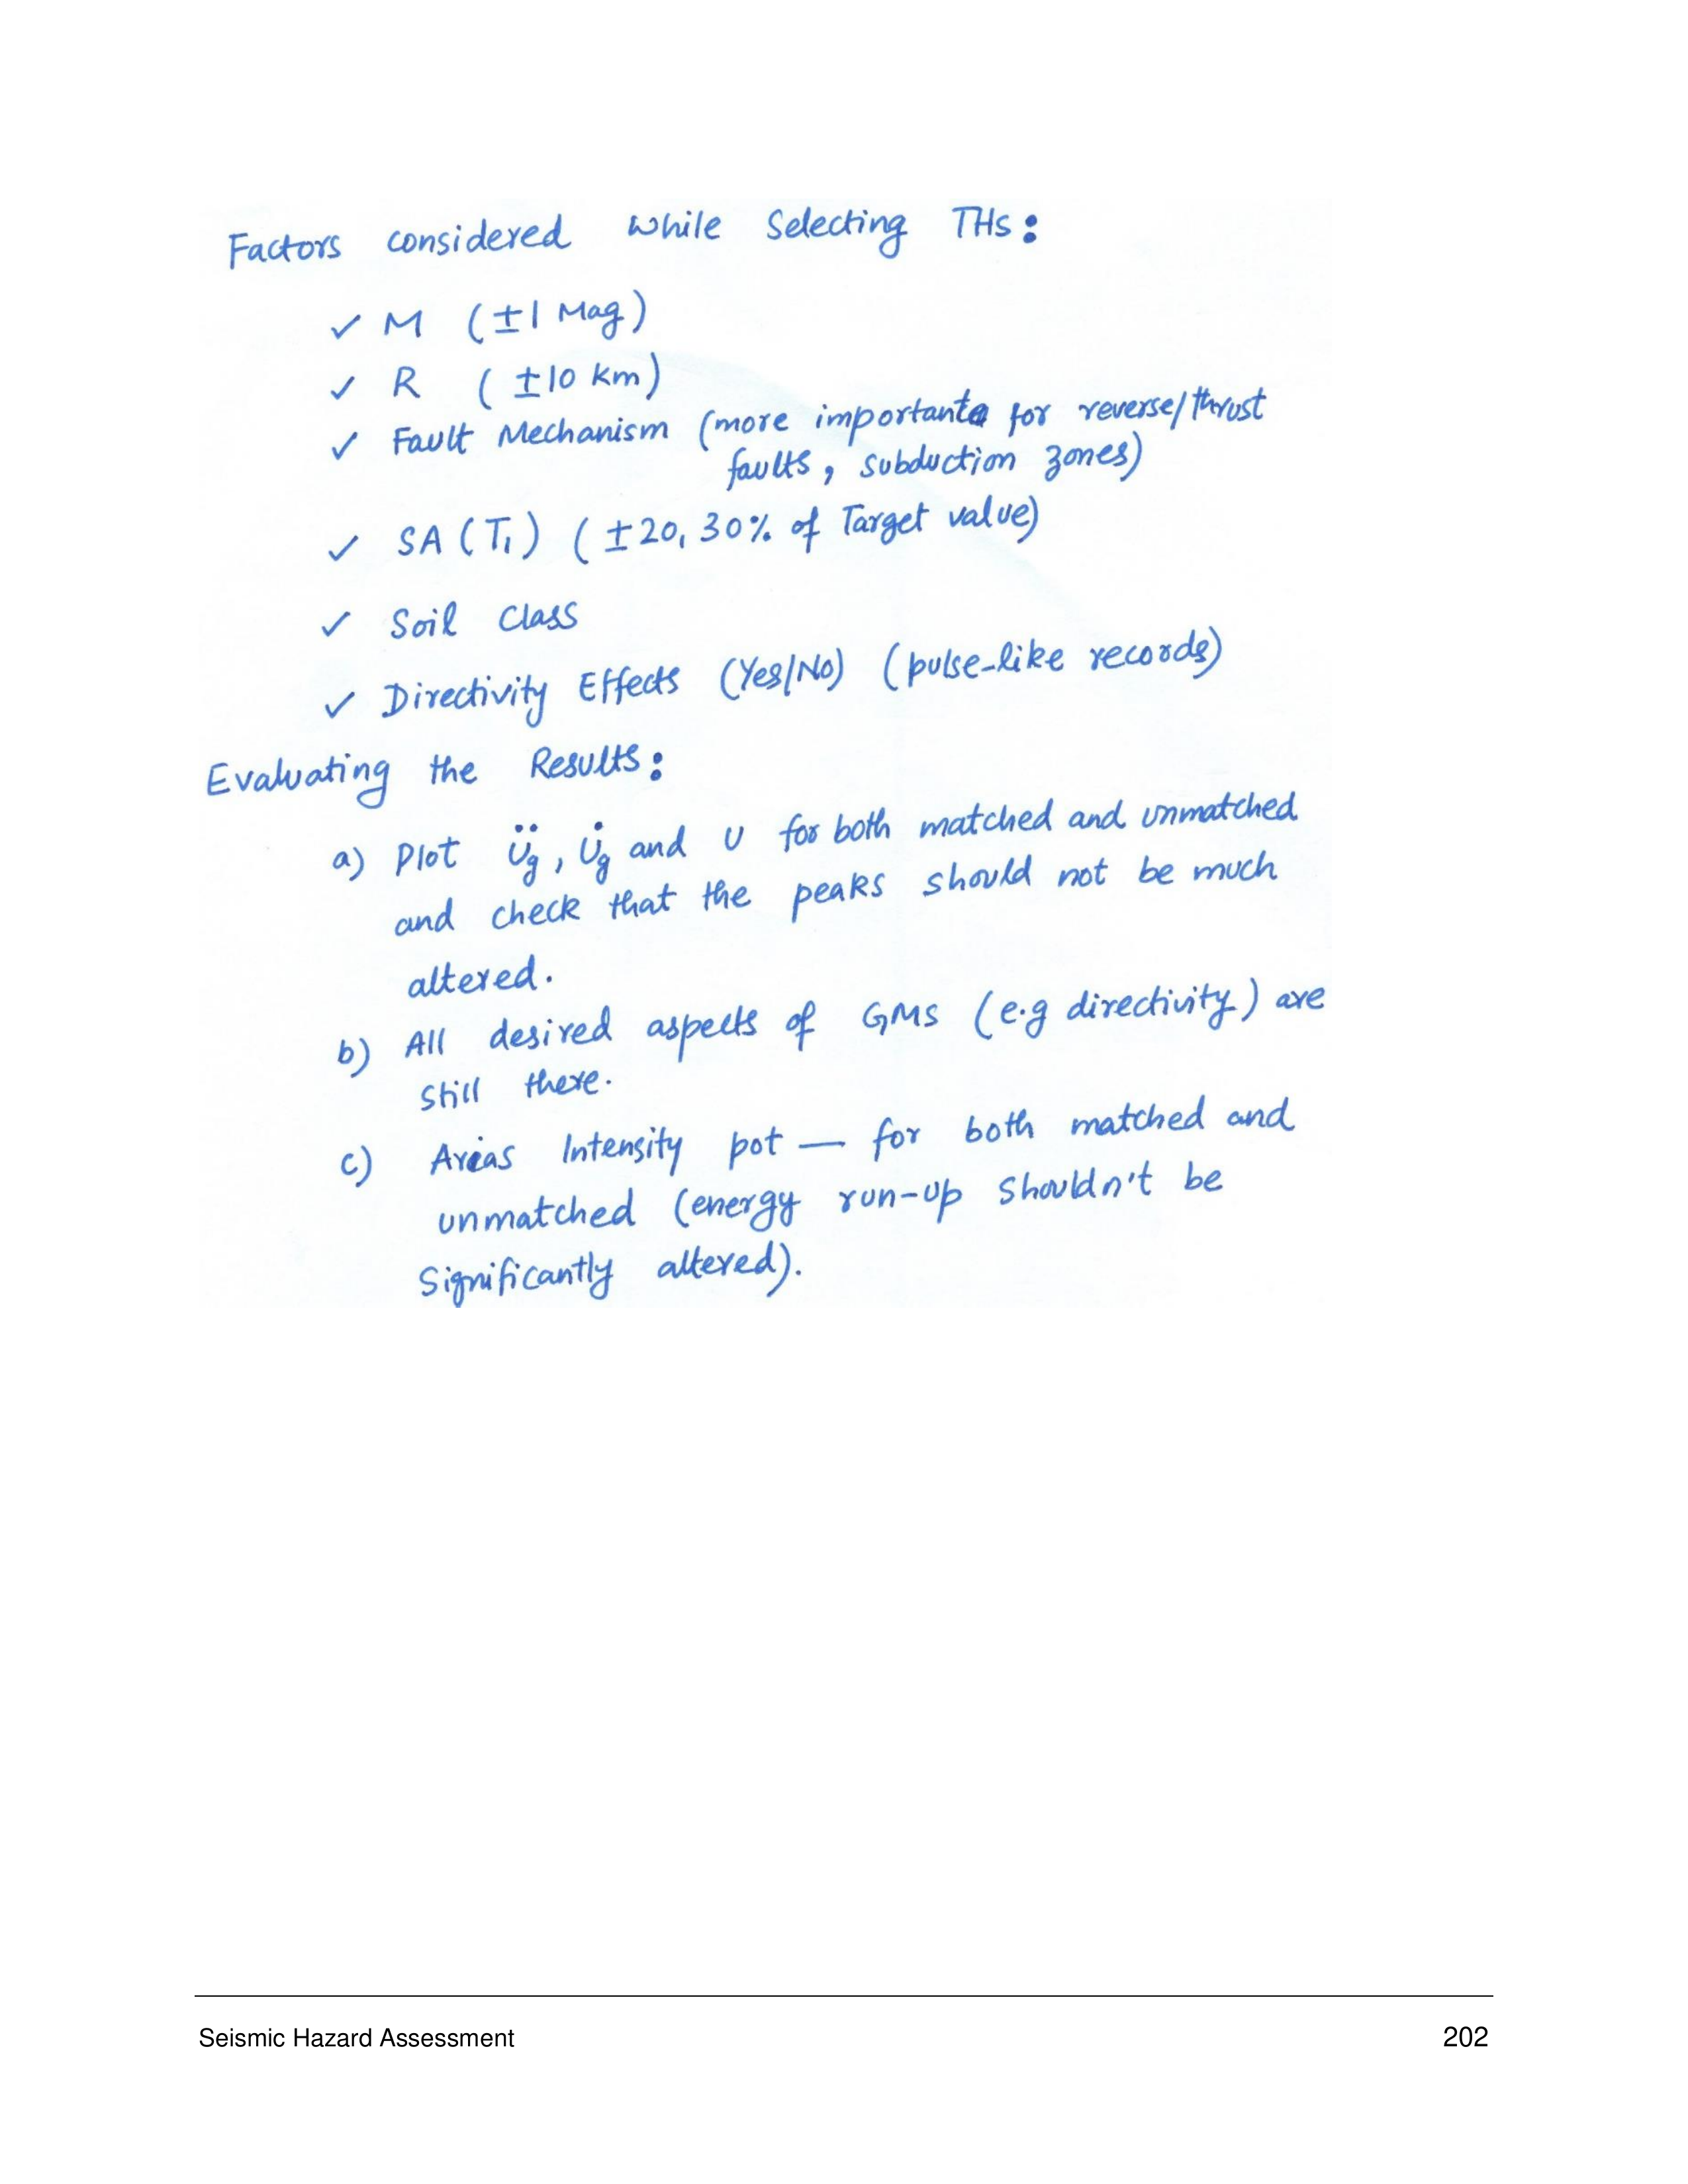 Factors considered while Selecting THs:
✓ M (±1 Mag)
✓ R (±10 km)
✓ Fault Mechanism (more important for reverse/thrust
faults, subduction zones)
✓ SA (T₁) (±20, 30% of Target value)
✓ Soil Class
✓ Directivity Effects (Yes/No) (pulse-like records)
Evaluating the Results:
a) Plot Üg, U̇g and U for both matched and unmatched
and check that the peaks should not be much
altered.
b) All desired aspects of GMs (e.g directivity) are
still there.
c) Arias Intensity pot — for both matched and
unmatched (energy run-up shouldn't be
Significantly altered).
Seismic Hazard Assessment 202